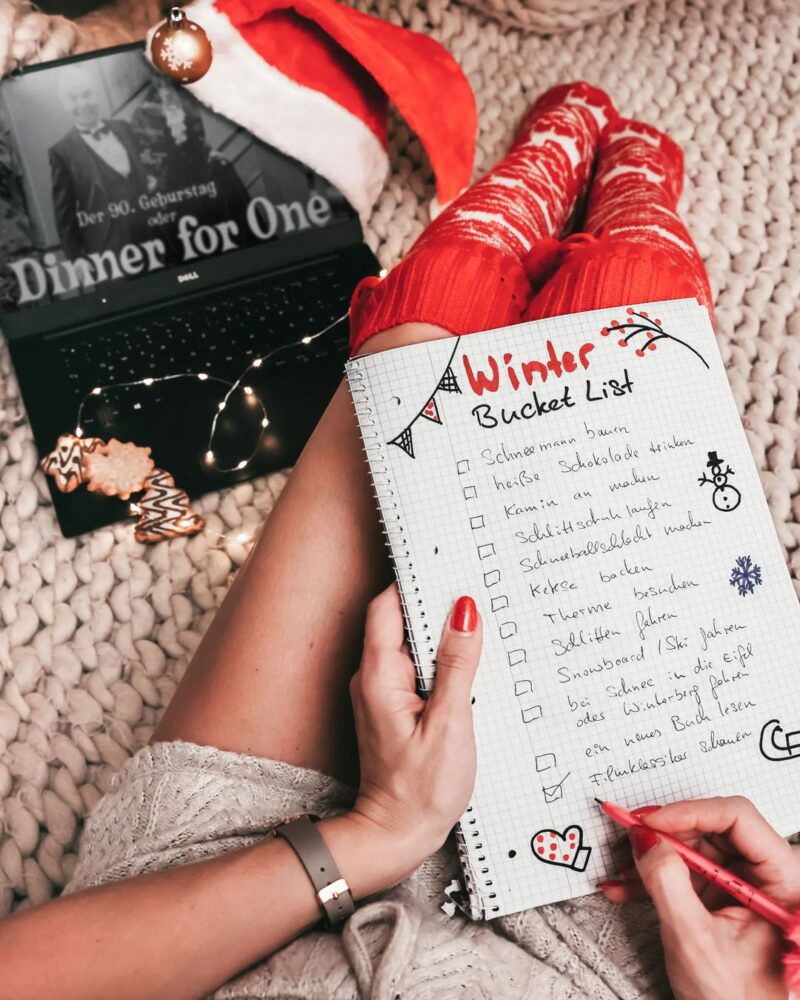 Der 90. Geburstag
oder
Dinner for One
DELL
Winter
Bucket List
Schneemann bauen
heiße Schokolade trinken
Kamin an machen
Schlittschuh laufen
Schneeballschlacht machen
Kekse backen
Therme besuchen
Schlitten fahren
Snowboard / Ski fahren
bei Schnee in die Eifel
oder Winterberg fahren
ein neues Buch lesen
Filmklassiker schauen